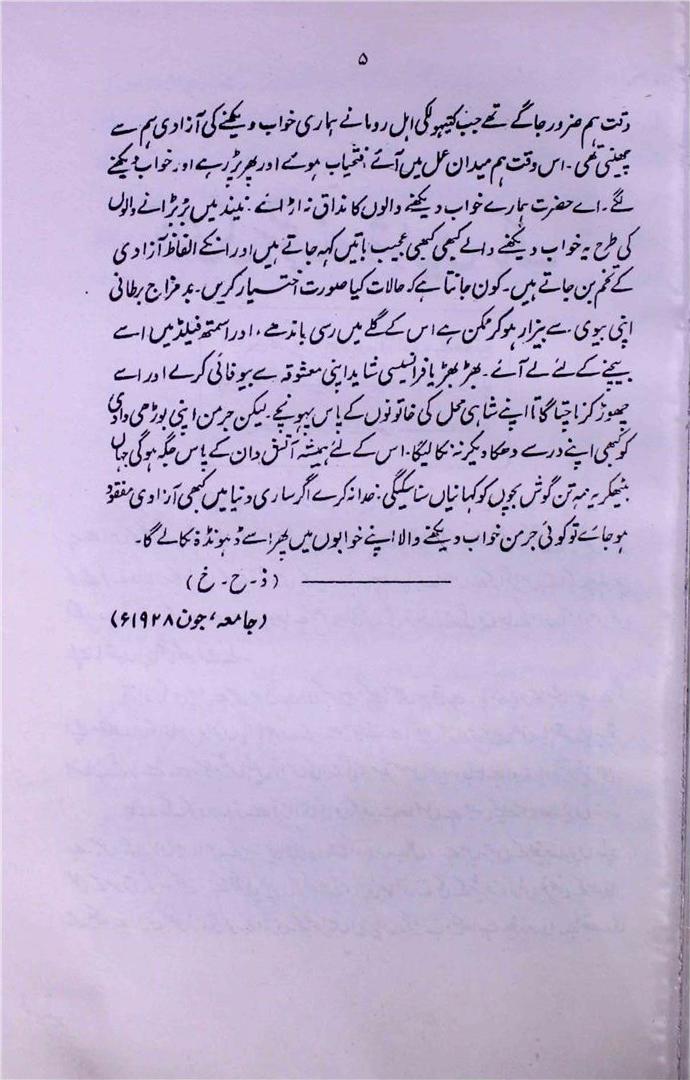 ۵
وقت ہم ضرور جاگے تھے جب کیتھولکی اہل روما نے ہماری خواب دیکھنے کی آزادی ہم سے
چھینی تھی۔ اس وقت ہم میدان عمل میں آئے، فتحیاب ہوئے اور پھر پڑ رہے اور خواب دیکھنے
لگے۔ اے حضرت ہمارے خواب دیکھنے والوں کا مذاق نہ اڑائیے۔ نیند میں بڑبڑانے والوں
کی طرح یہ خواب دیکھنے والے کبھی کبھی عجیب باتیں کہہ جاتے ہیں اور انکے الفاظ آزادی
کے تخم بن جاتے ہیں۔ کون جانتا ہے کہ حالات کیا صورت اختیار کریں۔ بدمزاج برطانی
اپنی بیوی سے بیزار ہوکر ممکن ہے اس کے گلے میں رسی باندھے، اور اسمتھ فیلڈ میں اسے
بیچنے کے لئے لے آئے۔ بھڑبھڑیا فرانسیسی شاید اپنی معشوقہ سے بیوفائی کرے اور اسے
چھوڑ کر ناچتا گاتا اپنے شاہی محل کی خاتونوں کے پاس پہونچے۔ لیکن جرمن اپنی بوڑھی دادی
کو کبھی اپنے در سے دھکا دیکر نہ نکالیگا۔ اس کے لئے ہمیشہ آتش دان کے پاس جگہ ہوگی جہاں
بیٹھکر یہ ہمہ تن گوش بچوں کو کہانیاں سنا سکیگی۔ خدا نہ کرے اگر ساری دنیا میں کبھی آزادی مفقود
ہو جائے تو کوئی جرمن خواب دیکھنے والا اپنے خوابوں میں پھر اسے ڈھونڈھ نکالے گا۔
(ذ۔ح۔خ)
(جامعہ، جون ۱۹۲۸ء)